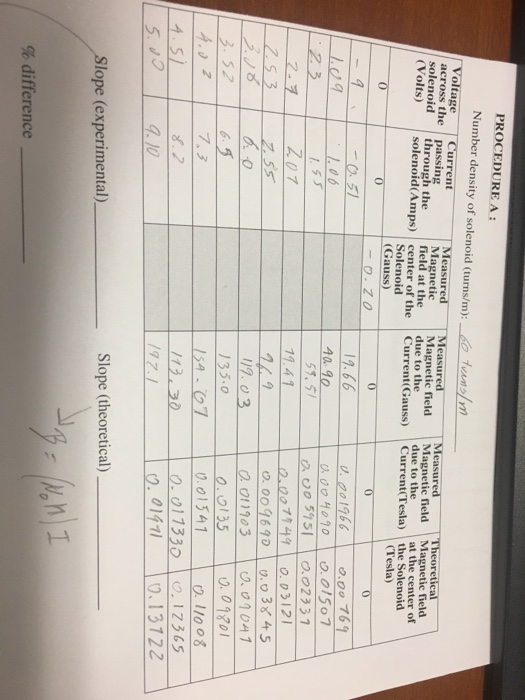 PROCEDURE A :
Number density of solenoid (turns/m): 60 turns/m
Voltage across the solenoid (Volts)
Current passing through the solenoid(Amps)
Measured Magnetic field at the center of the Solenoid (Gauss)
Measured Magnetic field due to the Current(Gauss)
Measured Magnetic field due to the Current(Tesla)
Theoretical Magnetic field at the center of the Solenoid (Tesla)
0 0 -0.20 0 0 0
-0.51 19.66 0.001966 0.00769
1.09 1.06 40.90 0.004090 0.01507
2.3 1.55 59.51 0.005951 0.02337
2.07 79.49 0.007949 0.03121
2.53 2.55 96.9 0.009690 0.03845
3.08 6.0 119.03 0.011903 0.09047
3.52 6.5 135.0 0.0135 0.09801
4.02 7.3 154.07 0.01541 0.11008
4.51 8.2 173.30 0.017330 0.12365
5.00 9.10 197.1 0.01971 0.13722
Slope (experimental)
Slope (theoretical)
B = (N₀N)I
% difference